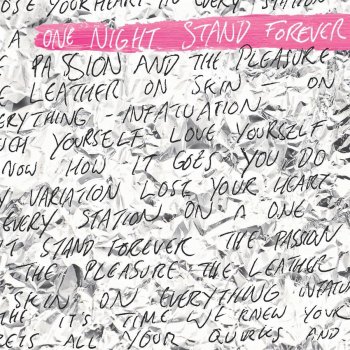 OSE YOUR HEART IN EVERY STATION
A ONE NIGHT STAND FOREVER
E PASSION AND THE PLEASURE
E LEATHER ON SKIN - ON
ERYTHING - INFATUATION
UCH YOURSELF LOVE YOURSELF
NOW HOW IT GOES YOU DO
Y VARIATION LOSE YOUR HEART
EVERY STATION ON A ONE
T STAND FOREVER THE PASSION
THE PLEASURE THE LEATHER
SKIN ON EVERYTHING INFATU
THE IT'S TIME WE KNEW YOUR
RETS ALL YOUR QUIRKS AND